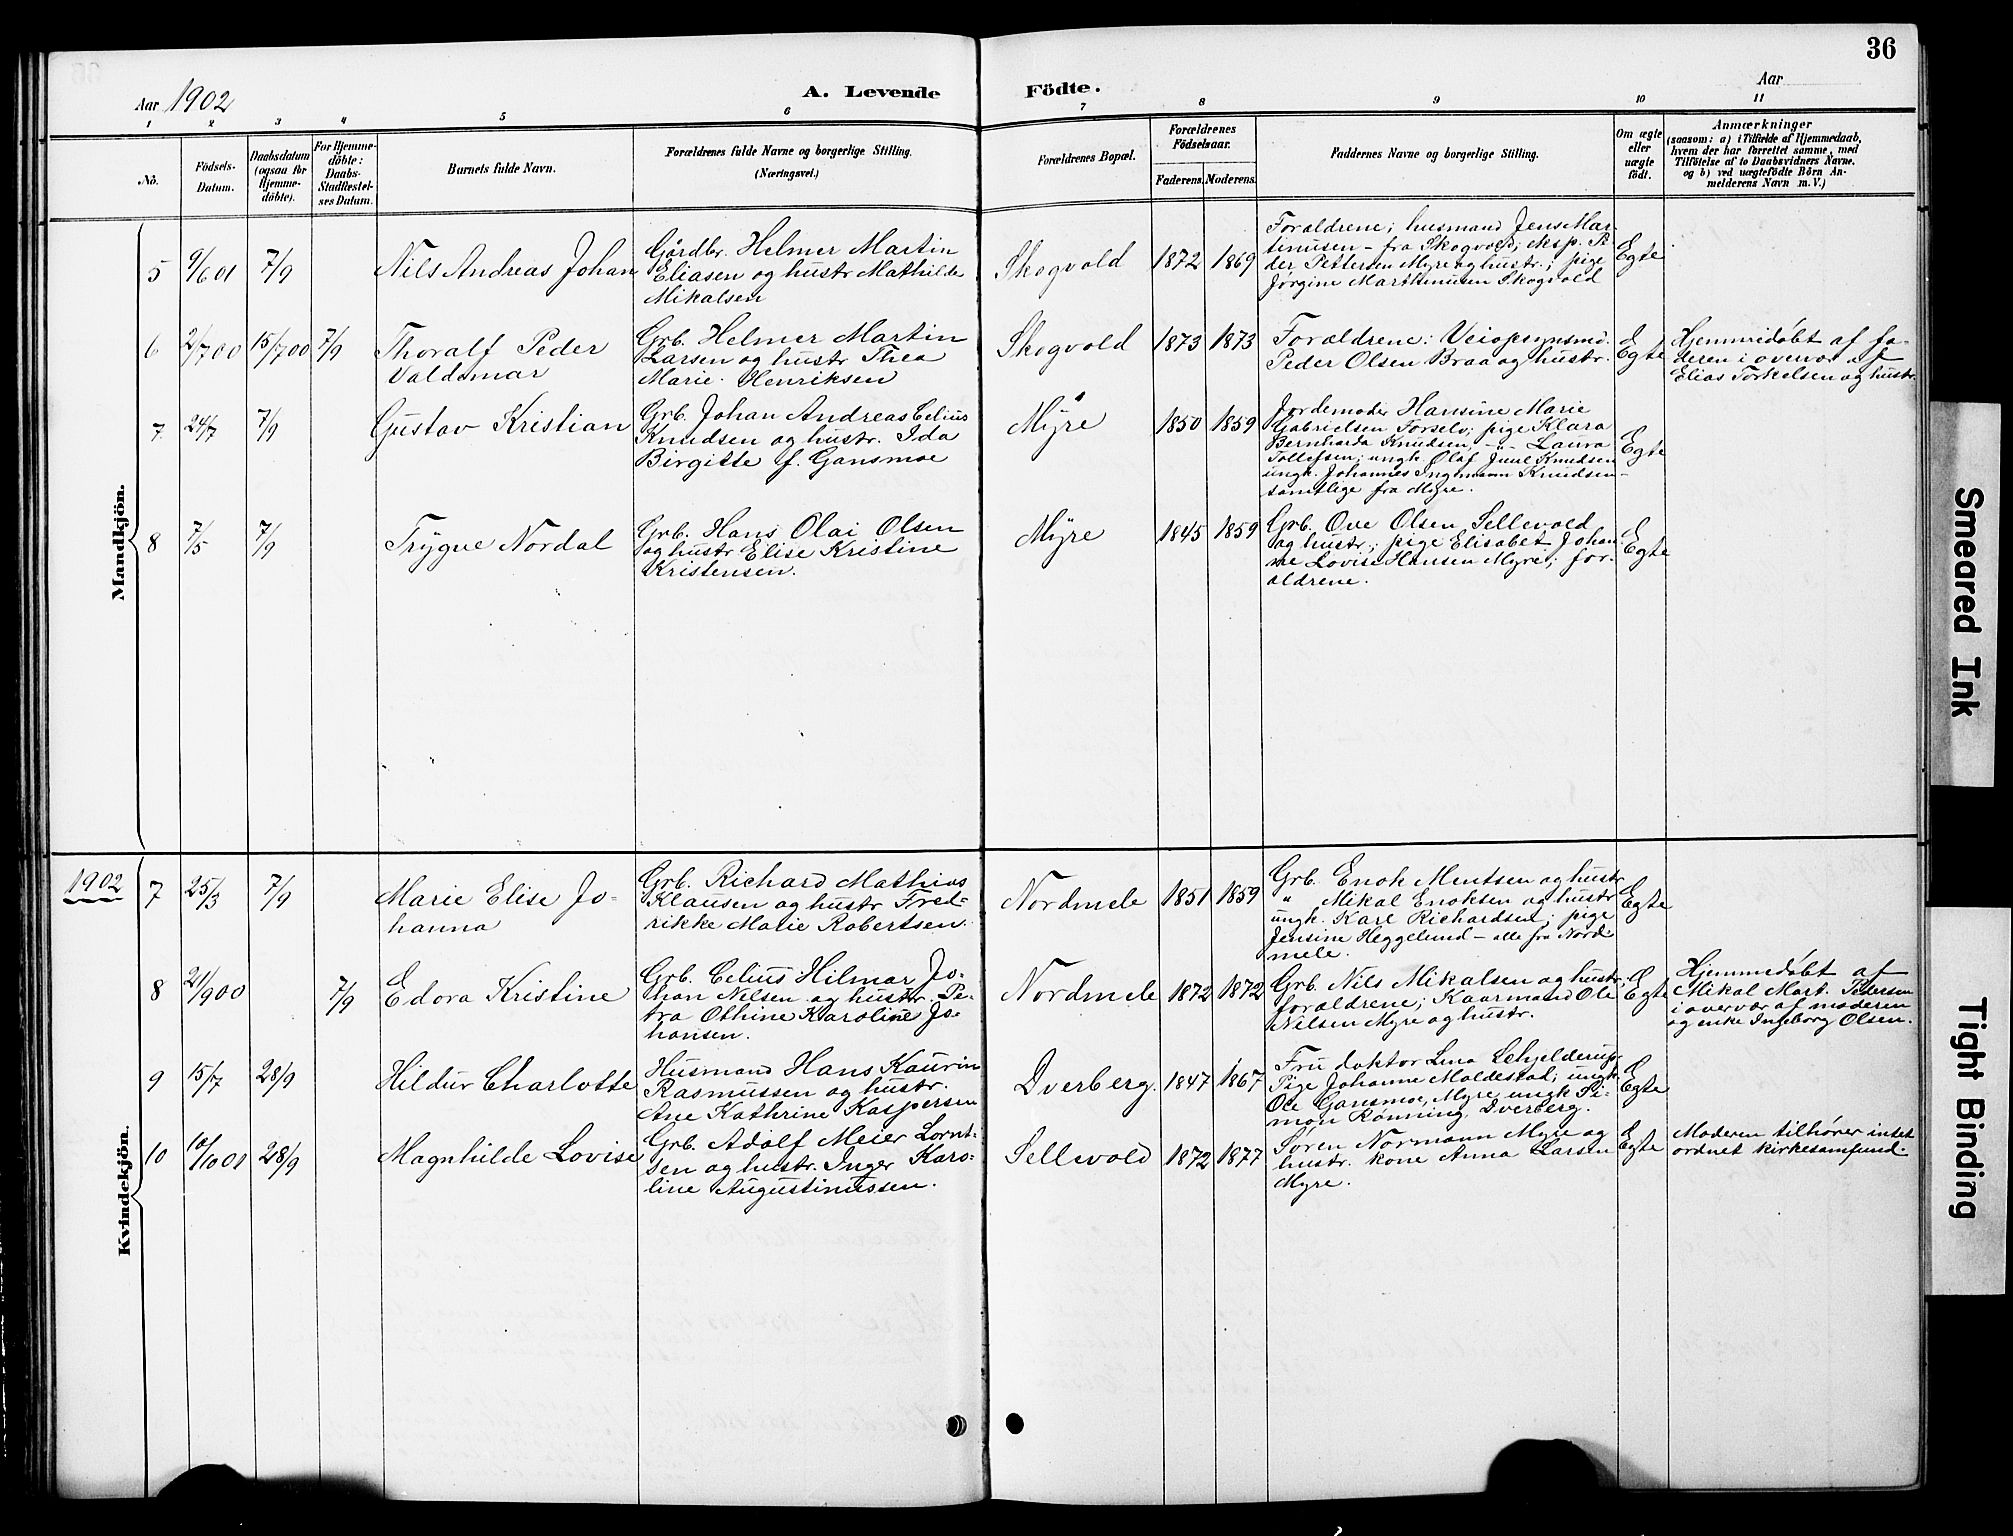 36
Aar 1902
A. Levende
Födte.
Aar
1 2 3 4 5 6 7 8 9 10 11
No.
Födsels-
Datum.
Daabsdatum
(ogsaa for
Hjemme-
döbte).
For Hjemme-
döbte:
Daabs-
Stadfæstel-
ses Datum.
Barnets fulde Navn.
Forældrenes fulde Navne og borgerlige Stilling.
(Næringsvei.)
Forældrenes Bopæl.
Forældrenes
Födselsaar.
Faderens. Moderens.
Faddernes Navne og borgerlige Stilling.
Om ægte
eller
uægte
födt.
Anmærkninger
(saasom: a) i Tilfælde af Hjemmedaab,
hvem der har forrettet samme, med
Tilföielse af to Daabsvidners Navne.
og b) ved uægtefödte Börn An-
melderens Navn m. V.)
Mandkjön.
5 9/6 01 7/9
Nils Andreas Johan
Gårdbr. Helmer Martin
Eliasen og hustr Mathilde
Mikalsen
Skogvold 1872 1869
Foraldrene; husmand Jens Mar-
tinusen - fra Skogvold; eksp. Pe-
der Pettersen Myre og hustr.; pige
Jørgine Marthinusen Skogvold
Egte
6 2/7 00 15/7 00 7/9
Thoralf Peder
Valdemar
Grb. Helmer Martin
Larsen og hustr Thea
Marie Henriksen
Skogvold 1873 1873
Foraldrene: Veiopsynsmd.
Peder Olsen Braa og hustr.
Egte
Hjemmedøbt af fa-
deren i overvær af
Elias Torkelsen og hustr.
7 24/7 7/9
Gustav Kristian
Grb. Johan Andreas Celius
Knudsen og hustr. Ida
Birgitte f. Gansmoe
Myre 1850 1859
Jordemoder Hansine Marie
Gabrielsen Forselv; pige Klara
Bernharda Knudsen, -"- Laura
Tollefsen; ungk. Olaf Juul Knudsen
ungk. Johannes Ingemann Knudsen -
samtlige fra Myre.
Egte
8 7/5 7/9
Trygve Nordal
Grb. Hans Olai Olsen
og hustr Elise Kristine
Kristensen.
Myre 1845 1859
Grb. Ove Olsen Sellevold
og hustr.; pige Elisabet Johan-
ne Lovise Hansen Myre; for-
aldrene.
Egte
1902
Kvindekjön.
7 25/3 7/9
Marie Elise Jo-
hanna
Grb. Richard Mathias
Klausen og hustr Fred-
rikke Marie Robertsen.
Nordmele 1851 1859
Grb. Enok Mentsen og hustr
" Mikal Enoksen og hustr
ungk. Karl Richardsen; pige
Jensine Heggelund - alle fra Nord
mele.
Egte
8 21/9 00 7/9
Edora Kristine
Grb. Celius Hilmar Jo-
han Nilsen og hustr. Pe-
tra Othine Karoline Jo-
hansen.
Nordmele 1872 1872
Grb. Nils Mikalsen og hustr.
foraldrene; Kaarmand Ole
Nilsen Myre og hustr.
Egte
Hjemmedøbt af
Mikal Mart. Pedersen
i overvær af moderen
og enke Ingeborg Olsen.
9 15/7 28/9
Hildur Charlotte
Husmand Hans Kaurin
Rasmussen og hustr.
Ane Kathrine Kaspersen
Dverberg. 1847 1867
Fru doktor Lena Schjelderup,
Pige Johanne Moldestad; ungk
Ole Gansmoe, Myre, ungk Si-
mon Rønning, Dverberg.
Egte
10 10/10 01 28/9
Magnhilde Lovise
Grb. Adolf Meier Lornt-
sen og hustr. Inger Karo-
line Augustinussen.
Sellevold 1872 1877
Søren Normann Myre og
hustr. kone Anna Larsen
Myre.
Egte
Moderen tilhører intet
ordnet kirkesamfund.
Smeared Ink
Tight Binding